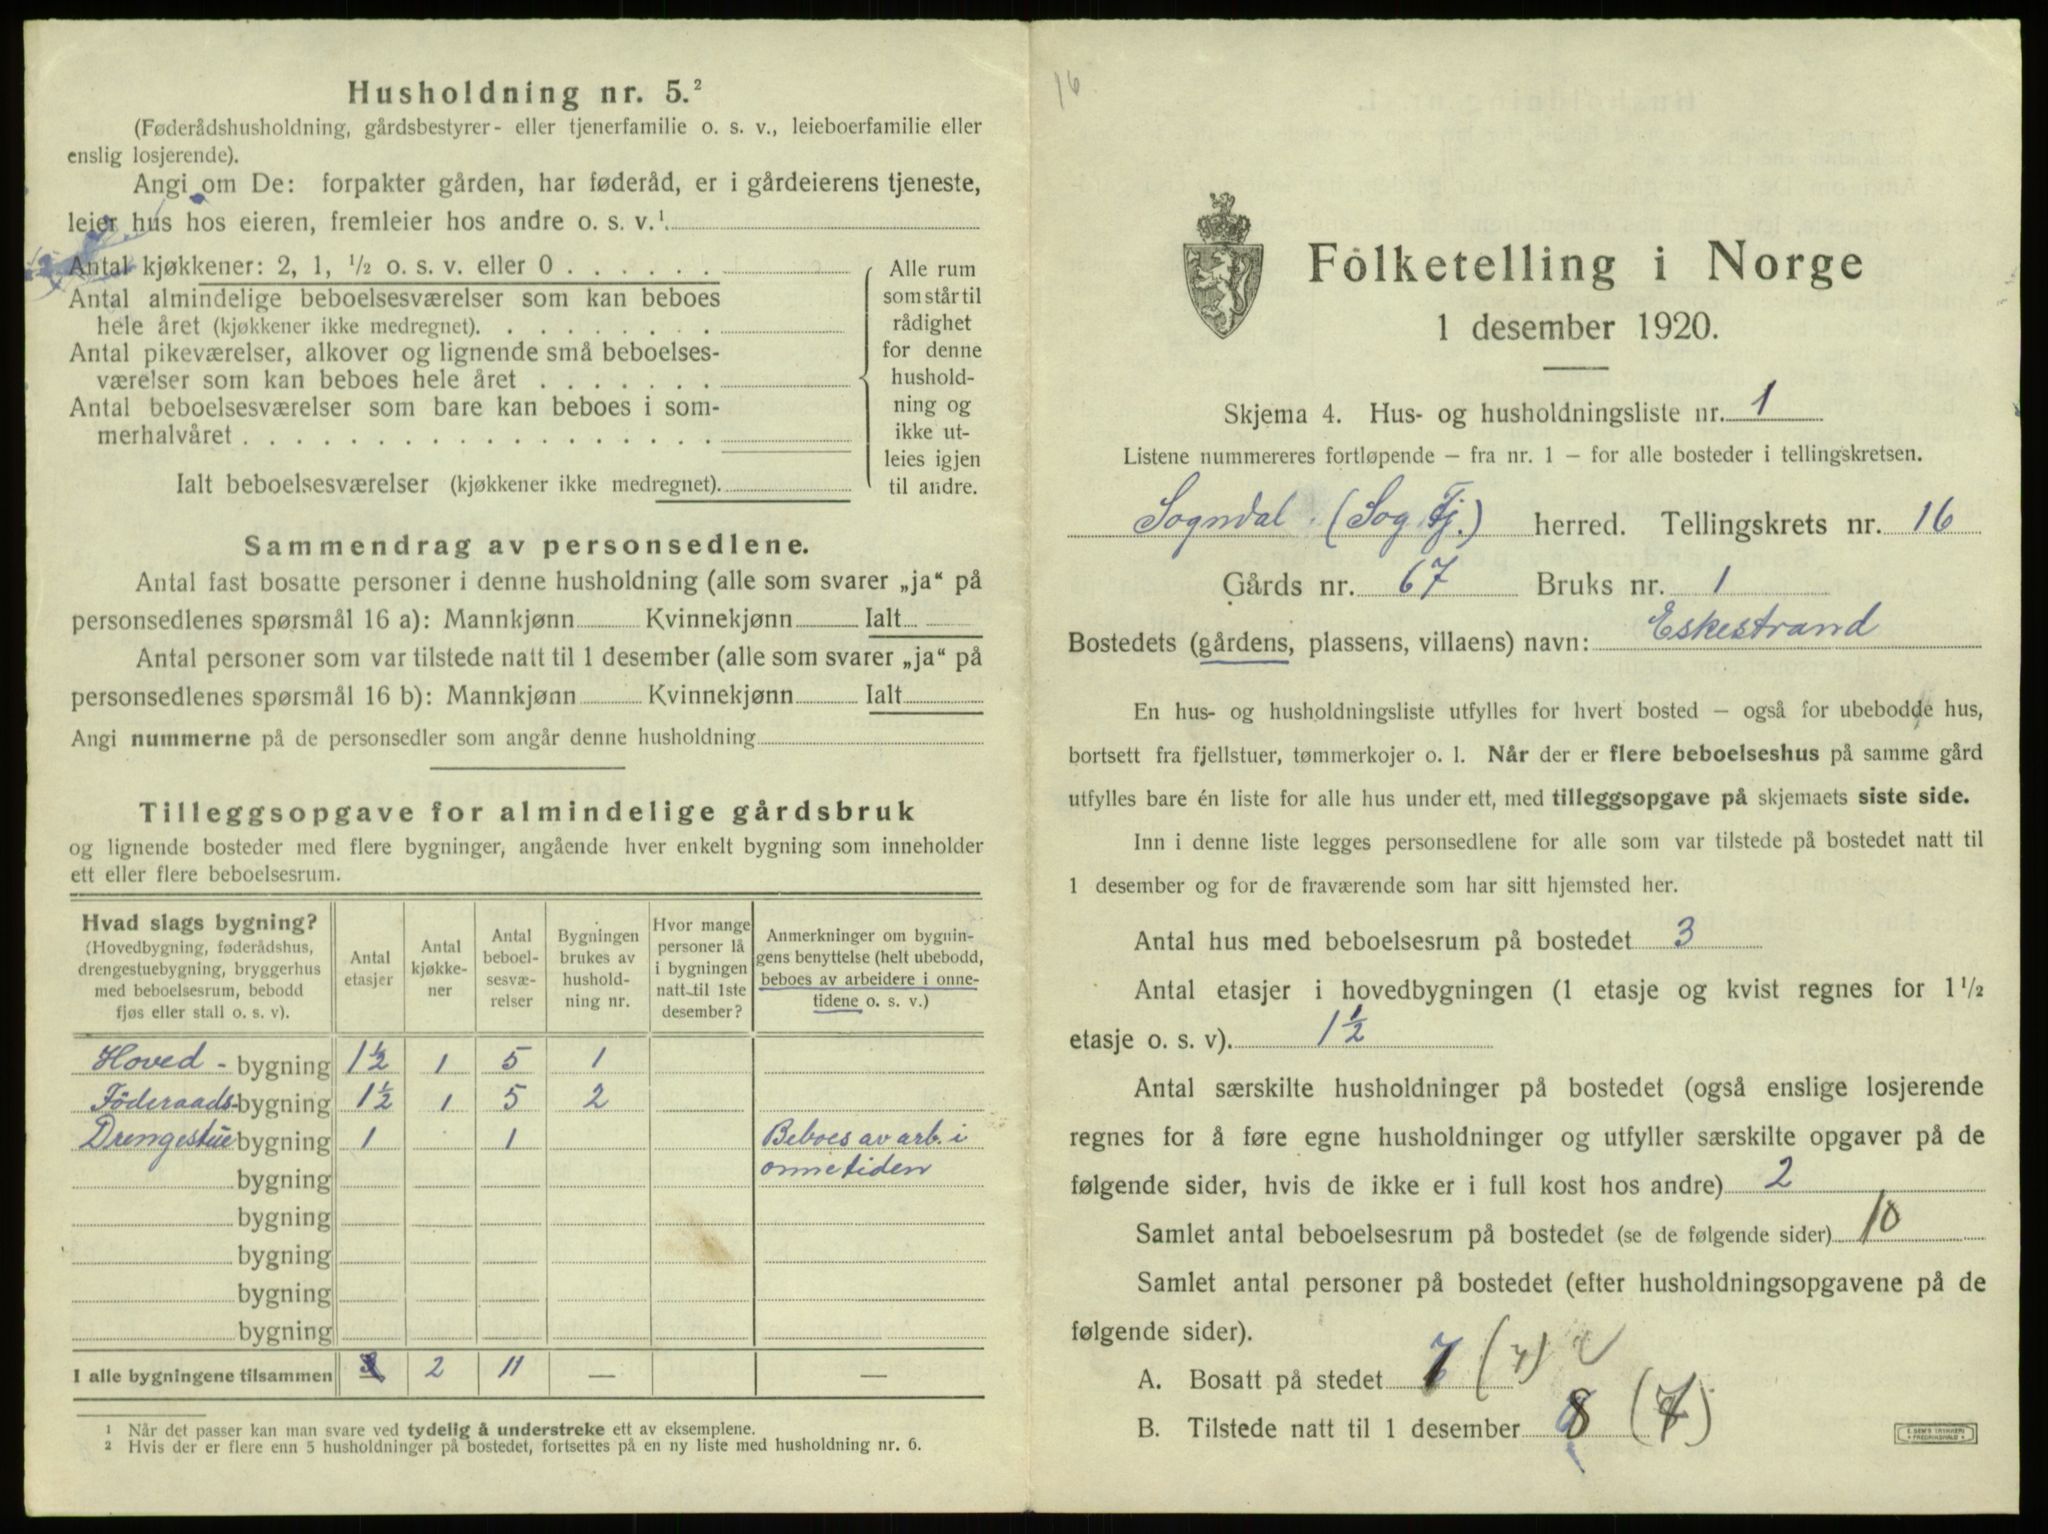 Husholdning nr. 5.²
(Føderådshusholdning, gårdsbestyrer- eller tjenerfamilie o. s. v., leieboerfamilie eller
enslig losjerende).
Angi om De: forpakter gården, har føderåd, er i gårdeierens tjeneste,
leier hus hos eieren, fremleier hos andre o. s. v.¹
Antal kjøkkener: 2, 1, ½ o. s. v. eller 0 . . . . . .
Antal almindelige beboelsesværelser som kan beboes
hele året (kjøkkener ikke medregnet). . . . . . . . .
Antal pikeværelser, alkover og lignende små beboelses-
værelser som kan beboes hele året . . . . . . .
Antal beboelsesværelser som bare kan beboes i som-
merhalvåret . . . . . . . . . . . . . . . . . .
Ialt beboelsesværelser (kjøkkener ikke medregnet).
Alle rum
som står til
rådighet
for denne
hushold-
ning og
ikke ut-
leies igjen
til andre.
Sammendrag av personsedlene.
Antal fast bosatte personer i denne husholdning (alle som svarer „ja“ på
personsedlenes spørsmål 16 a): Mannkjønn Kvinnekjønn Ialt
Antal personer som var tilstede natt til 1 desember (alle som svarer „ja“ på
personsedlenes spørsmål 16 b): Mannkjønn Kvinnekjønn Ialt
Angi nummerne på de personsedler som angår denne husholdning
Tilleggsopgave for almindelige gårdsbruk
og lignende bosteder med flere bygninger, angående hver enkelt bygning som inneholder
ett eller flere beboelsesrum.
Hvad slags bygning?
(Hovedbygning, føderådshus,
drengestuebygning, bryggerhus
med beboelsesrum, bebodd
fjøs eller stall o. s. v).
Antal
etasjer
Antal
kjøkke-
ner
Antal
beboel-
sesvæ-
relser
Bygningen
brukes av
hushold-
ning nr.
Hvor mange
personer lå
i bygningen
natt til 1ste
desember?
Anmerkninger om bygnin-
gens benyttelse (helt ubebodd,
beboes av arbeidere i onne-
tidene o. s. v.)
Hoved - bygning 1½ 1 5 1
Föderaads- bygning 1½ 1 5 2
Drengestue bygning 1 1 Beboes av arb. i
bygning onnetiden
bygning
bygning
bygning
bygning
I alle bygningene tilsammen 2 11 — —
¹ Når det passer kan man svare ved tydelig å understreke ett av eksemplene.
² Hvis der er flere enn 5 husholdninger på bostedet, fortsettes på en ny liste med husholdning nr. 6.
16
Folketelling i Norge
1 desember 1920.
Skjema 4. Hus- og husholdningsliste nr. 1
Listene nummereres fortløpende — fra nr. 1 — for alle bosteder i tellingskretsen.
Sogndal (Sog Fj.) herred. Tellingskrets nr. 16
Gårds nr. 67 Bruks nr. 1
Bostedets (gårdens, plassens, villaens) navn: Eskestrand
En hus- og husholdningsliste utfylles for hvert bosted — også for ubebodde hus,
bortsett fra fjellstuer, tømmerkojer o. l. Når der er flere beboelseshus på samme gård
utfylles bare én liste for alle hus under ett, med tilleggsopgave på skjemaets siste side.
Inn i denne liste legges personsedlene for alle som var tilstede på bostedet natt til
1 desember og for de fraværende som har sitt hjemsted her.
Antal hus med beboelsesrum på bostedet 3
Antal etasjer i hovedbygningen (1 etasje og kvist regnes for 1½
etasje o. s. v). 1½
Antal særskilte husholdninger på bostedet (også enslige losjerende
regnes for å føre egne husholdninger og utfyller særskilte opgaver på de
følgende sider, hvis de ikke er i full kost hos andre) 2
Samlet antal beboelsesrum på bostedet (se de følgende sider) 10
Samlet antal personer på bostedet (efter husholdningsopgavene på de
følgende sider).
A. Bosatt på stedet 7
B. Tilstede natt til 1 desember 8 (7)